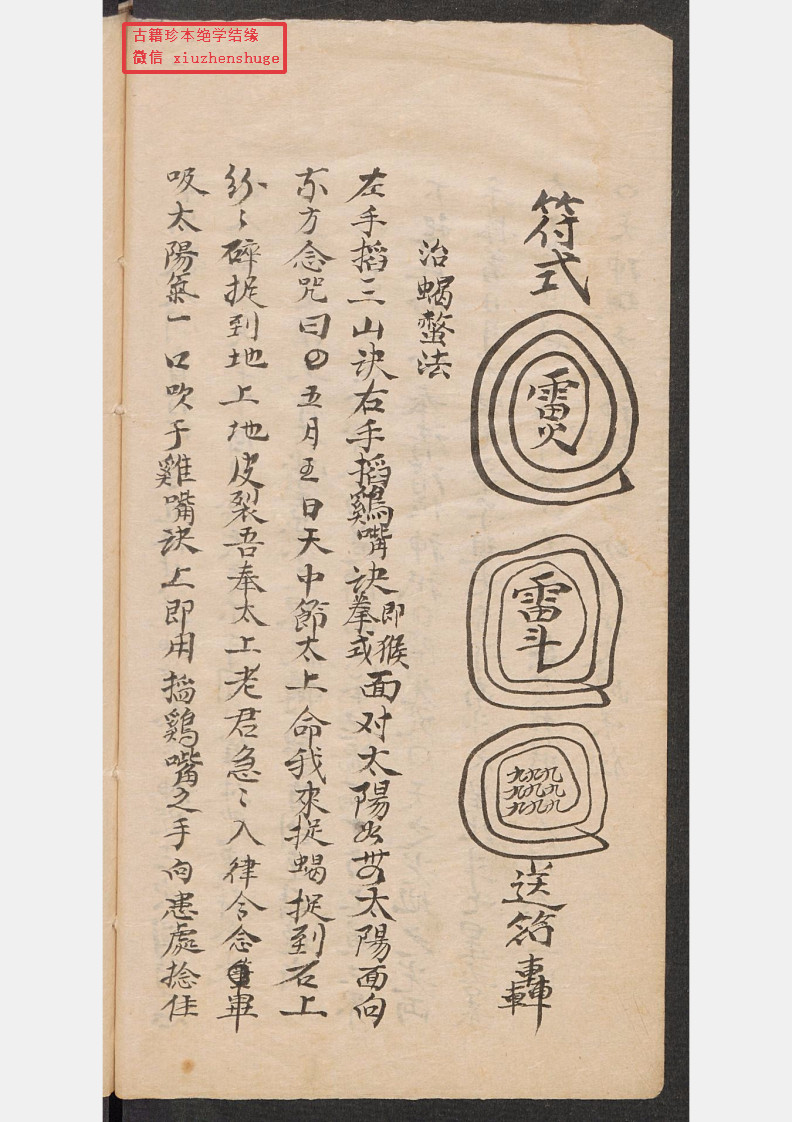 古籍珍本绝学结缘
微信 xiuzhenshuge
符式
雷火
雷斗
九九九
九九九
九九九
送符
轟
治蝎螫法
左手搯三山诀右手搯鷄嘴诀即猴拳式面对太陽如無太陽面向
东方念咒曰五月五日天中節太上命我來捉蝎捉到石上
紛〻碎捉到地上地皮裂吾奉太上老君急〻入律令念畢
吸太陽氣一口吹于雞嘴诀上即用搯鷄嘴之手向患處捻住